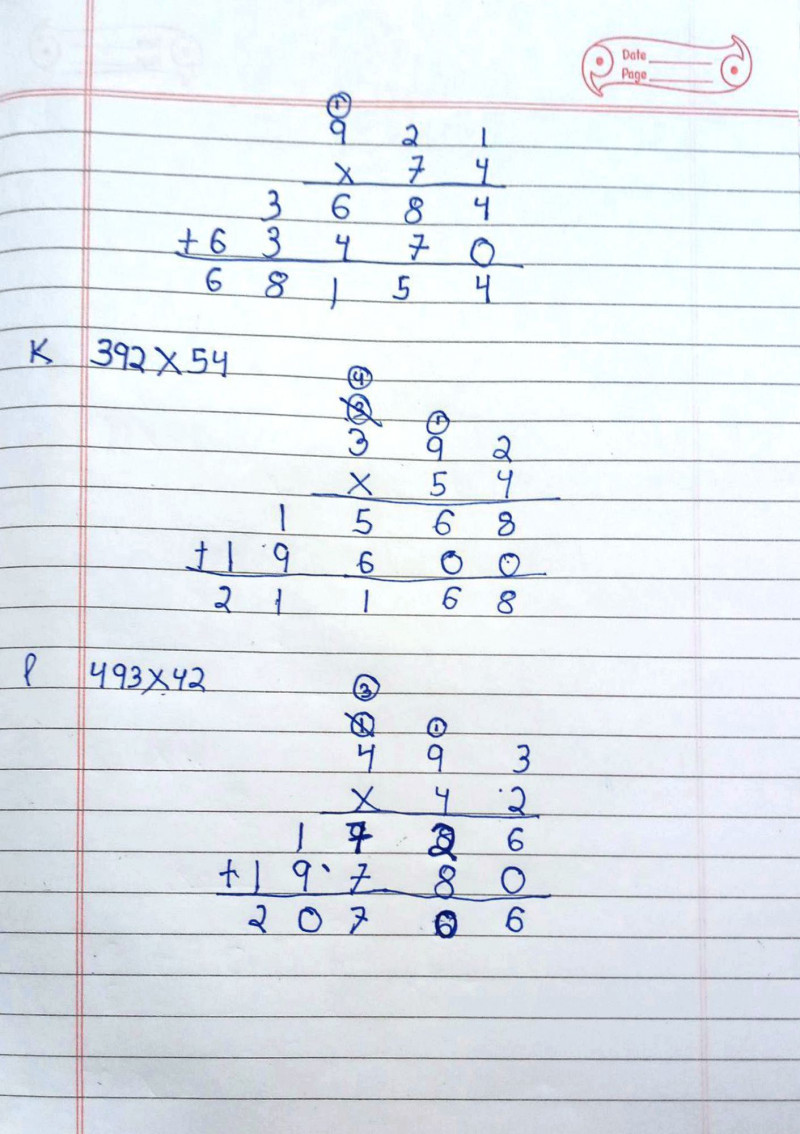 Date
Page
1
9 2 1
x 7 4
3 6 8 4
+6 3 4 7 0
6 8 1 5 4
K 392x54
4
1
3 9 2
x 5 4
1 5 6 8
+1 9 6 0 0
2 1 1 6 8
l 493x42
3
1 1
4 9 3
x 4 2
1 6
+1 9 7 8 0
2 0 7 0 6